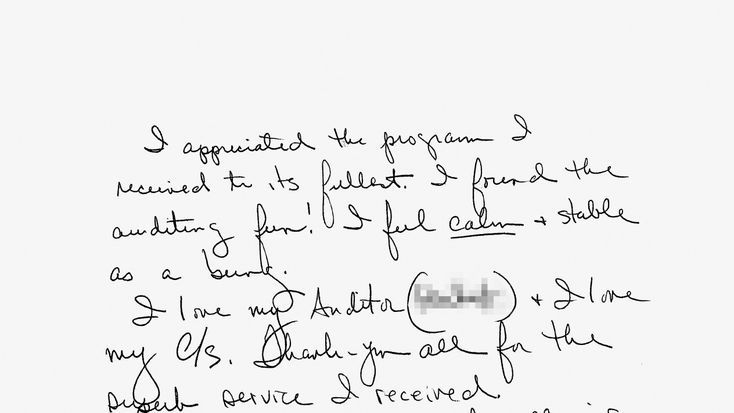 I appreciated the program I
received to its fullest. I found the
auditing fun! I feel calm + stable
as a being.
I love my Auditor ( ) + I love
my C/S. Thank-you all for the
superb service I received.